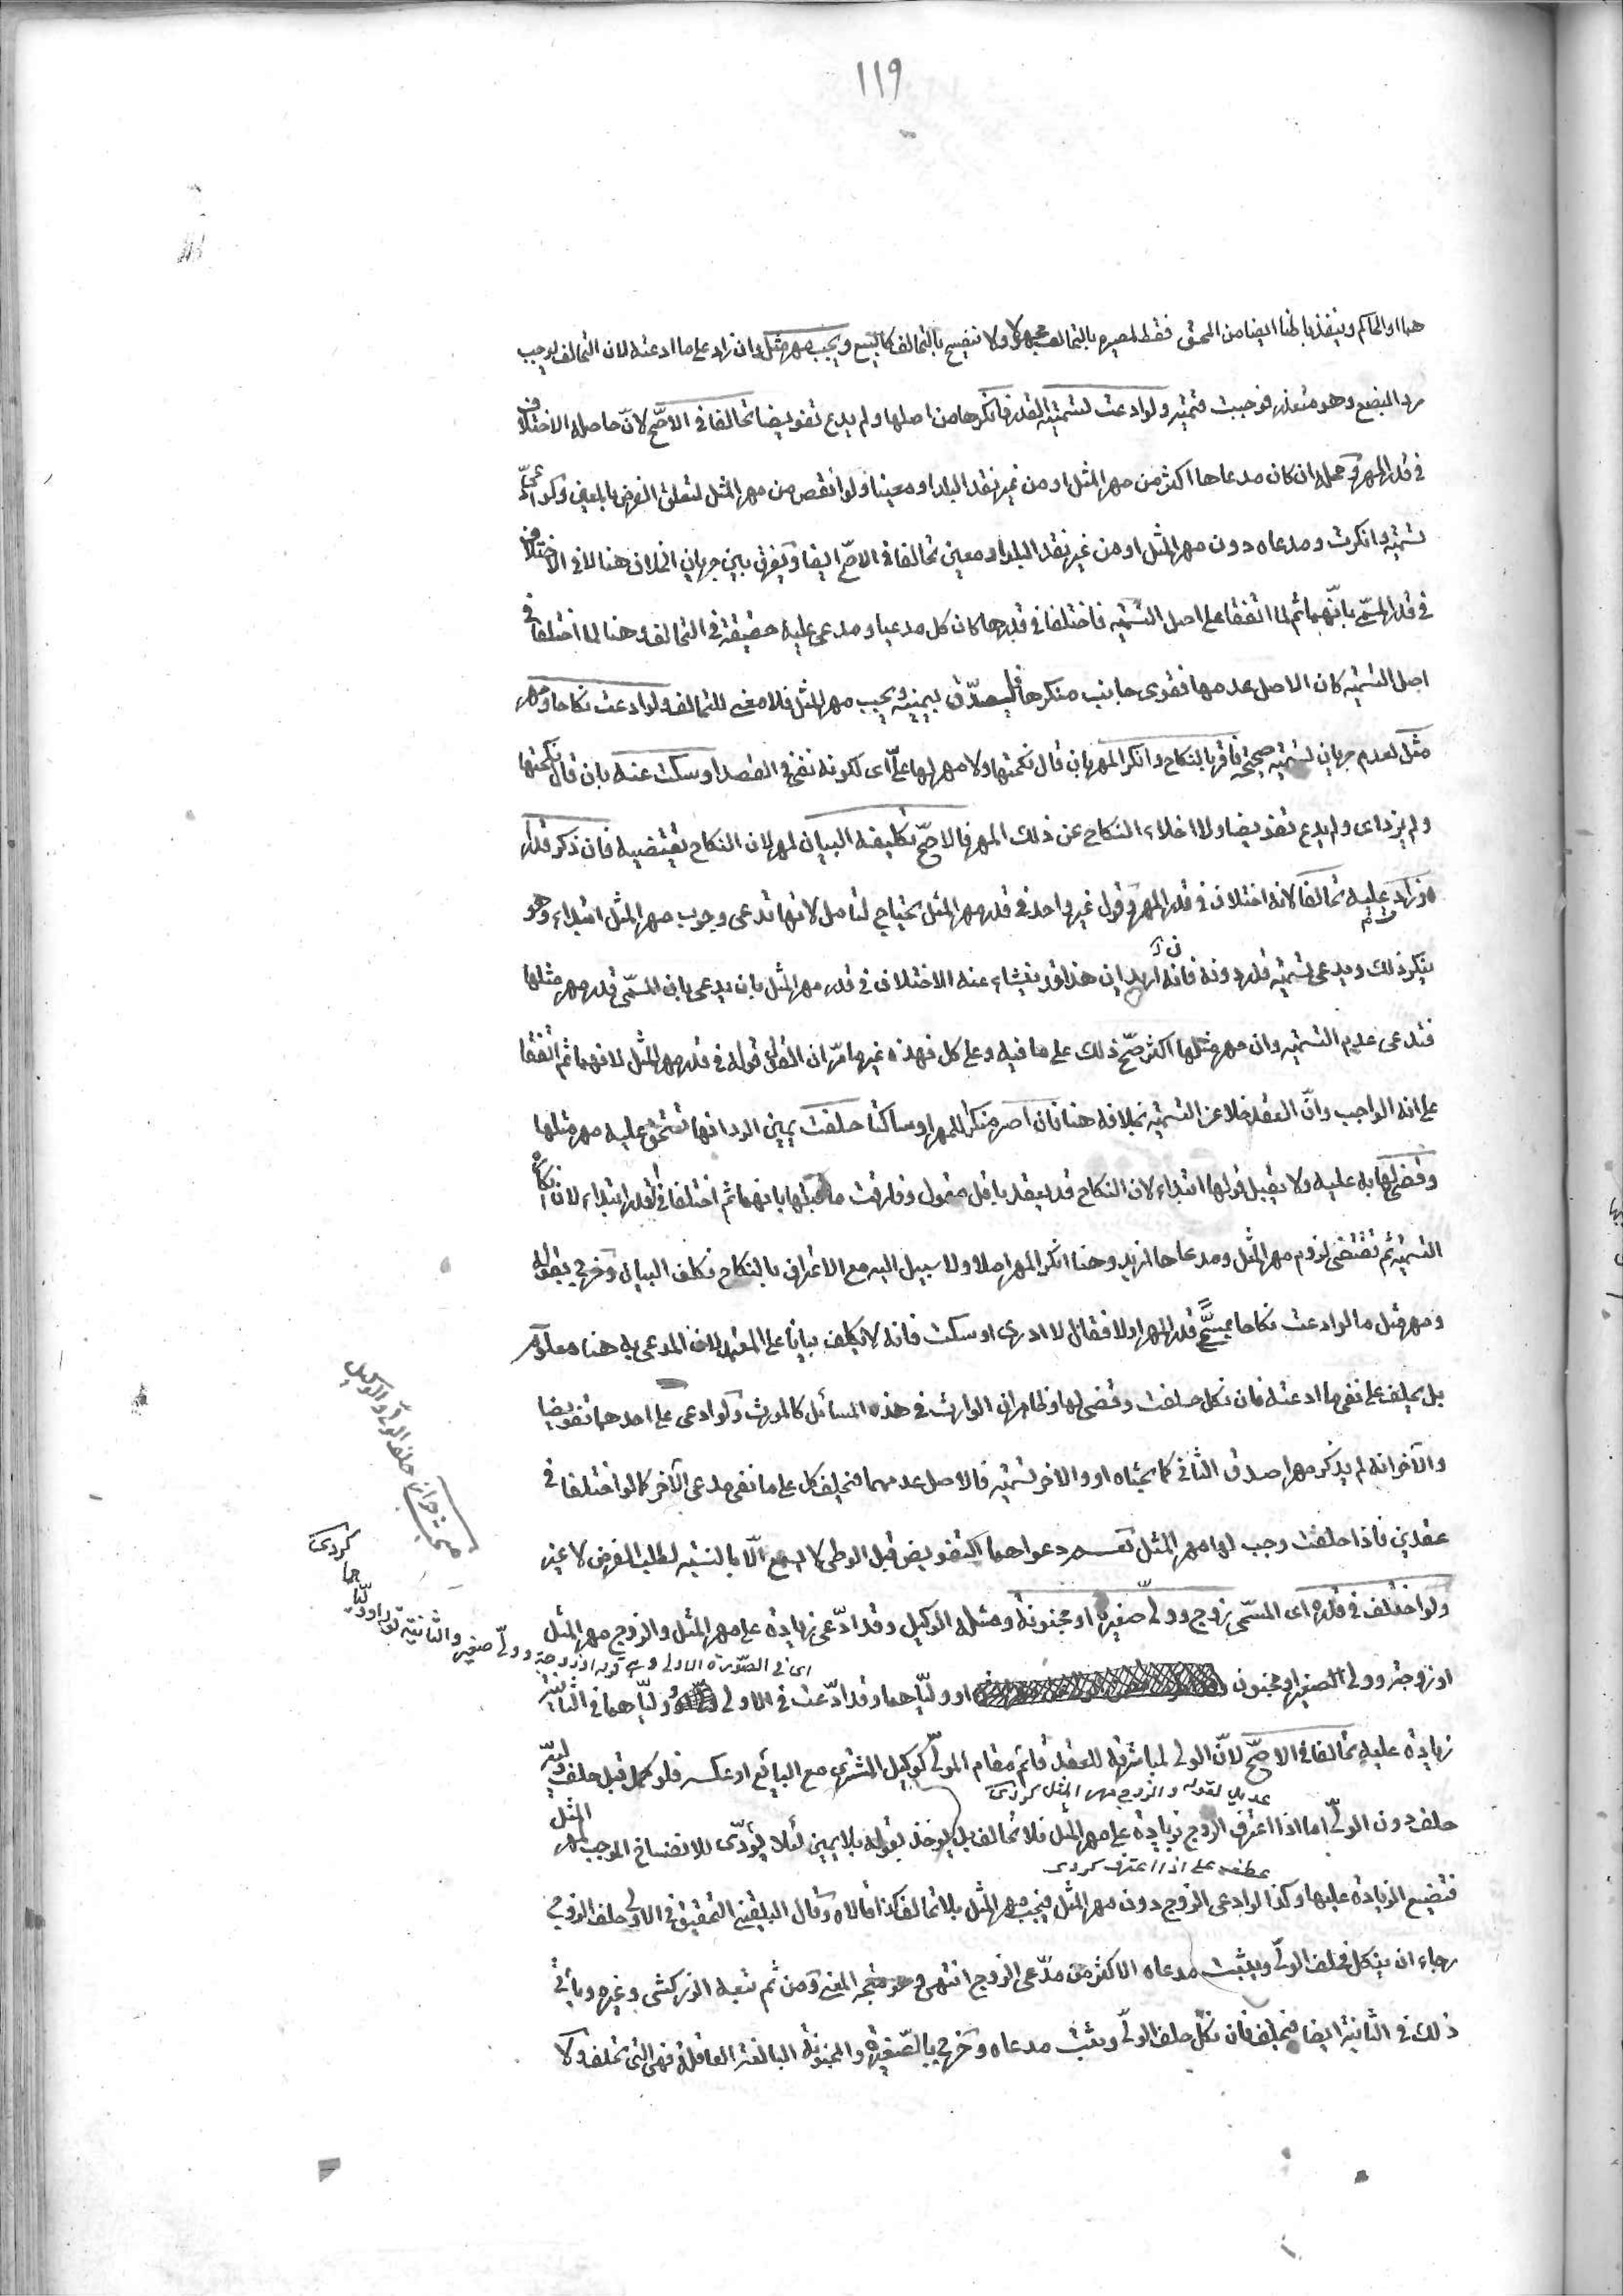 ١١٩
هما او الحاكم وينفذ باطنا ايضا من المحق فقط لمصيره بالتحالف مجهولا ولا ينفسخ بالتحالف كالبيع ويجب مهر مثل وان زاد على ما ادعته لان التحالف يوجب
رد البضع وهو متعذر فوجبت قيمته ولو ادعت تسمية لقدر فانكرها من اصلها ولم يدع تفويضا تحالفا في الاصح لان حاصله الاختلاف
في قدر المهر ومحله ان كان مدعاها اكثر من مهر المثل او من غير نقد البلد او معينا ولو انقص من مهر المثل لتعلق الغرض بالعين وكو ادعى
تسمية وانكرت ومدعاه دون مهر المثل او من غير نقد البلد او معين تحالفا في الاصح ايضا ويفرق بين جريان الخلاف هنا لا في الاختلاف
في قدر المسمى بانهما ثم لما اتفقا على اصل التسمية فاختلفا في قدرها كان كل مدعيا ومدعى عليه حقيقة في التحالف وهنا لما اختلفا في
اصل التسمية كان الاصل عدمها فقوى جانب منكرها فليصدق بيمينه يجب مهر المثل فلا معنى للتحالف ولو ادعت نكاحا ومهر
مثل لعدم جريان تسمية صحيحة فاقر بالنكاح وانكر المهر بان قال نكحتها ولا مهر لها على اى لكونه نفى في العقد او سكت عنه بان قال نكحتها
ولم يزد اى ولم يدع تفويضا ولا اخلاء النكاح عن ذلك المهر فالاصح تكليفه البيان لمهر لان النكاح يقتضيه فان ذكر قدرا
وزادت عليه تحالفا لانه اختلاف في قدر المهر وقول غير واحد في قدر مهر المثل يحتاج لتامل لانها تدعى وجوب مهر المثل ابتداء وهو
ينكر ذلك ويدعى تسمية قدر دونه فان اريد ان هذا قد ينشاء عنه الاختلاف في قدر مهر المثل بان يدعى بان المسمى قدر مهر مثلها
فتدعى عدم التسمية وان مهر مثلها اكثر صح ذلك على ما فيه وعلى كل فهذه غير ما مر ان القول قوله في قدر مهر المثل لانهما ثم اتفقا
على انه الواجب وان العقد خلا عن التسمية بخلافه هنا فان اصر منكرا للمهر او ساكتا حلفت يمين الرد انها تستحق عليه مهر مثلها
وقضى لها به عليه ولا يقبل قولها ابتداء لان النكاح قد يعقد باقل متمول وفارقت ما قبلها بانهما ثم اختلفا في القدر ابتداء لان انكاره
التسمية ثم تقتضى لزوم مهر المثل ومدعاها ازيد وهنا انكر المهر اصلا ولا سبيل اليه مع الاعتراف بالنكاح فكلف البيان وخرج بقوله
ومهر مثل ما لو ادعت نكاحا بمسمى قدر المهر اولا فقال لا ادرى او سكت فانه لا يكلف بيانا على المعتمد لان المدعى به هنا معلوم
بل يحلف على نفى ما ادعته فان نكل حلفت وقضى لها وظاهر ان الوارث في هذه المسائل كالمورث ولو ادعى على احدهما تفويضا
والآخر انه لم يذكر مهر اصدق الثاني كما بحثاه او والاخر تسمية فالاصل عدمهما فيحلف كل على ما نفى مدعى الآخر كما لو اختلفا في
عقدين فاذا حلفت وجب لها مهر المثل نعم دعواهما التفويض قبل الوطى لا يسمع الا بالنسبة لطلب الفرض لا غير
ولو اختلف في قدره اى المسمى زوج وولى صغيرة او مجنونة ومثله الوكيل وقد ادعى زيادة على مهر المثل والزوج مهر المثل
اى في الصورة الاولى وهى قوله او زوجة وولى صغير والثانية قوله او ولياهما كردى
او زوجة وولى الصغير او مجنون او ولياهما وقد ادعت في الاولى وولياهما في الثانية
زيادة عليه تحالفا في الاصح لان الولى لمباشرته للعقد قائم مقام المولى كوكيل المشترى مع البائع او عكسه فلو كمل قبل حلف وليه
عديل لقوله والزوج مهر المثل كردى
حلف دون الولى اما اذا اعترف الزوج بزيادة على مهر المثل فلا تحالف بل يؤخذ بقوله بلا يمين لئلا يؤدى للانفساخ الموجب لمهر المثل
عطف على اذا اعترف كردى
فتضيع الزيادة عليها وكذا لو ادعى الزوج دون مهر المثل فيجب مهر المثل بلا تحالف كذا قالاه وقال البلقينى التحقيق في الاولى حلف الزوج
رجاء ان ينكل فيحلف الولى ويثبت مدعاه الاكثر من مدعى الزوج انتهى وهو متجه المعنى ومن ثم تبعه الزركشى وغيره وياتى
ذلك في الثانية ايضا فيحلف فان نكل حلف الولى ويثبت مدعاه وخرج بالصغيرة والمجنونة البالغة العاقلة فهى التى تحلف ولا
مبحث جواز حلف الولى والوكيل